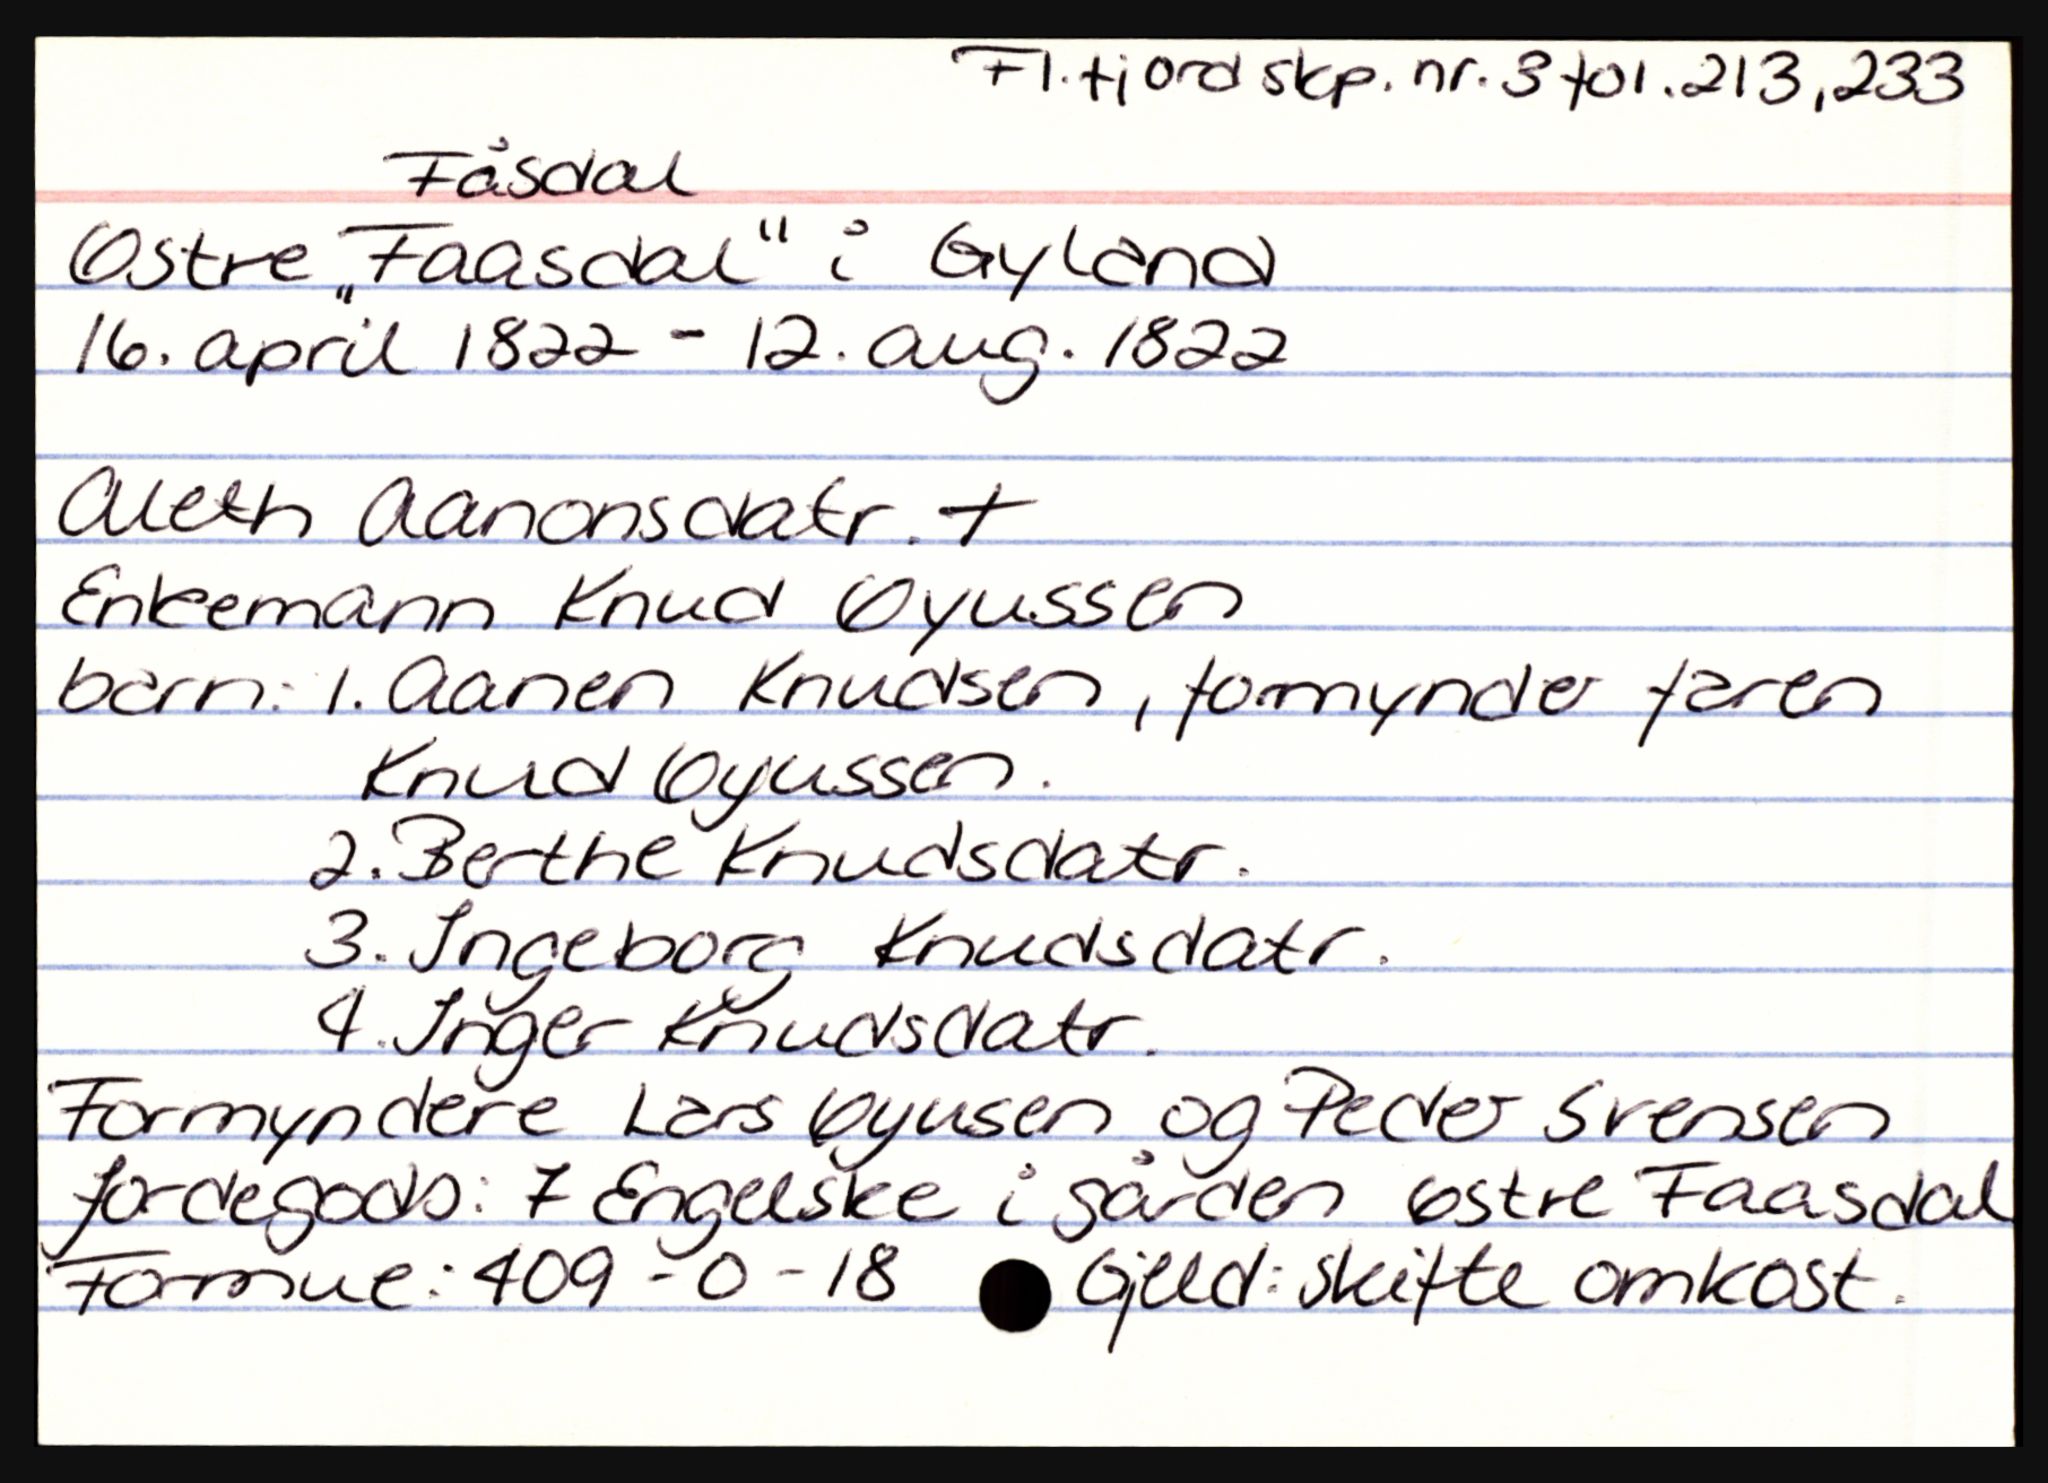 Fl.fjord skp. nr. 3 fol. 213, 233
Fåsdal
Østre „Faasdal" i Gyland
16. april 1822 - 12. aug. 1822
Aleth Aanonsdatr. +
Enkemann Knud Øyussen
barn: 1. Aanen Knudsen, formynder faren
Knud Øyussen.
2. Berthe Knudsdatr.
3. Ingeborg Knudsdatr.
4. Inger Knudsdatr.
Formyndere Lars Øyusen og Peder Svensen
jordegods: 7 Engelske i gården østre Faasdal
Formue: 409 - 0 - 18 Gjeld: skifte omkost.